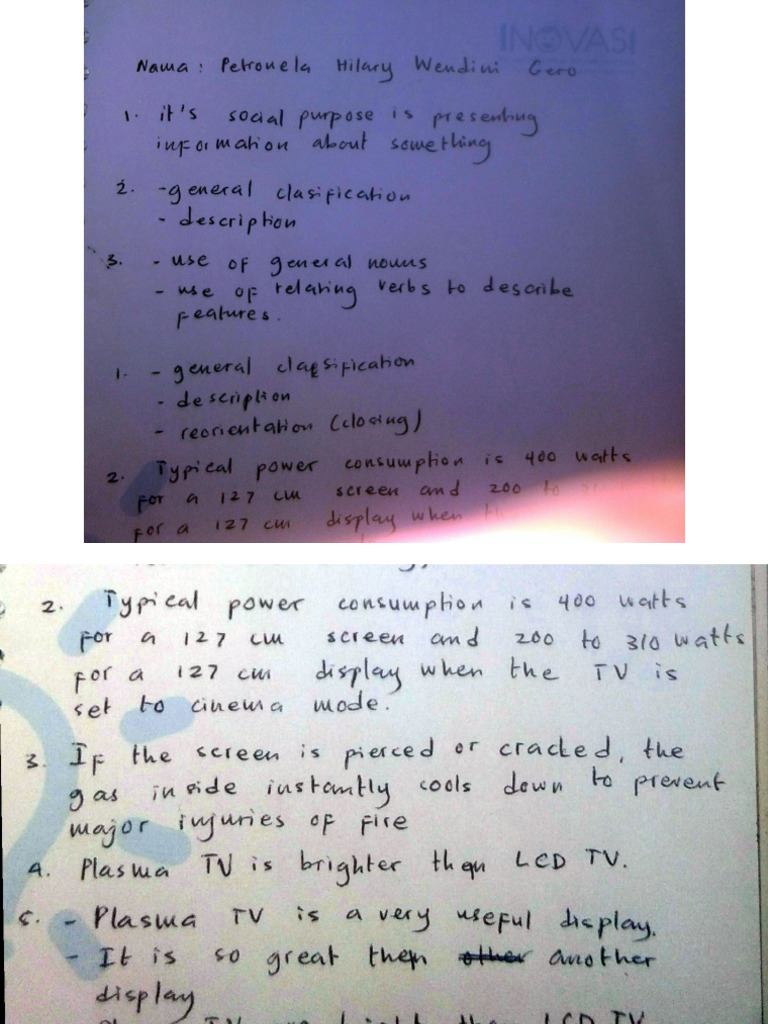 INOVASI
Nama : Petronela Hilary Wendini Gero
1. it's social purpose is presenting
information about something
2. - general clasification
- description
3. - use of general nouns
- use of relating verbs to describe
features.
1. - general classification
- description
- reorientation (closing)
2. Typical power consumption is 400 watts
for a 127 cm screen and 200 to
for a 127 cm display when
2. Typical power consumption is 400 watts
for a 127 cm screen and 200 to 310 watts
for a 127 cm display when the TV is
set to cinema mode.
3. If the screen is pierced or cracked, the
gas inside instantly cools down to prevent
major injuries of fire
4. Plasma TV is brighter than LCD TV.
5. - Plasma TV is a very useful display.
- It is so great then other another
display
LCD TV